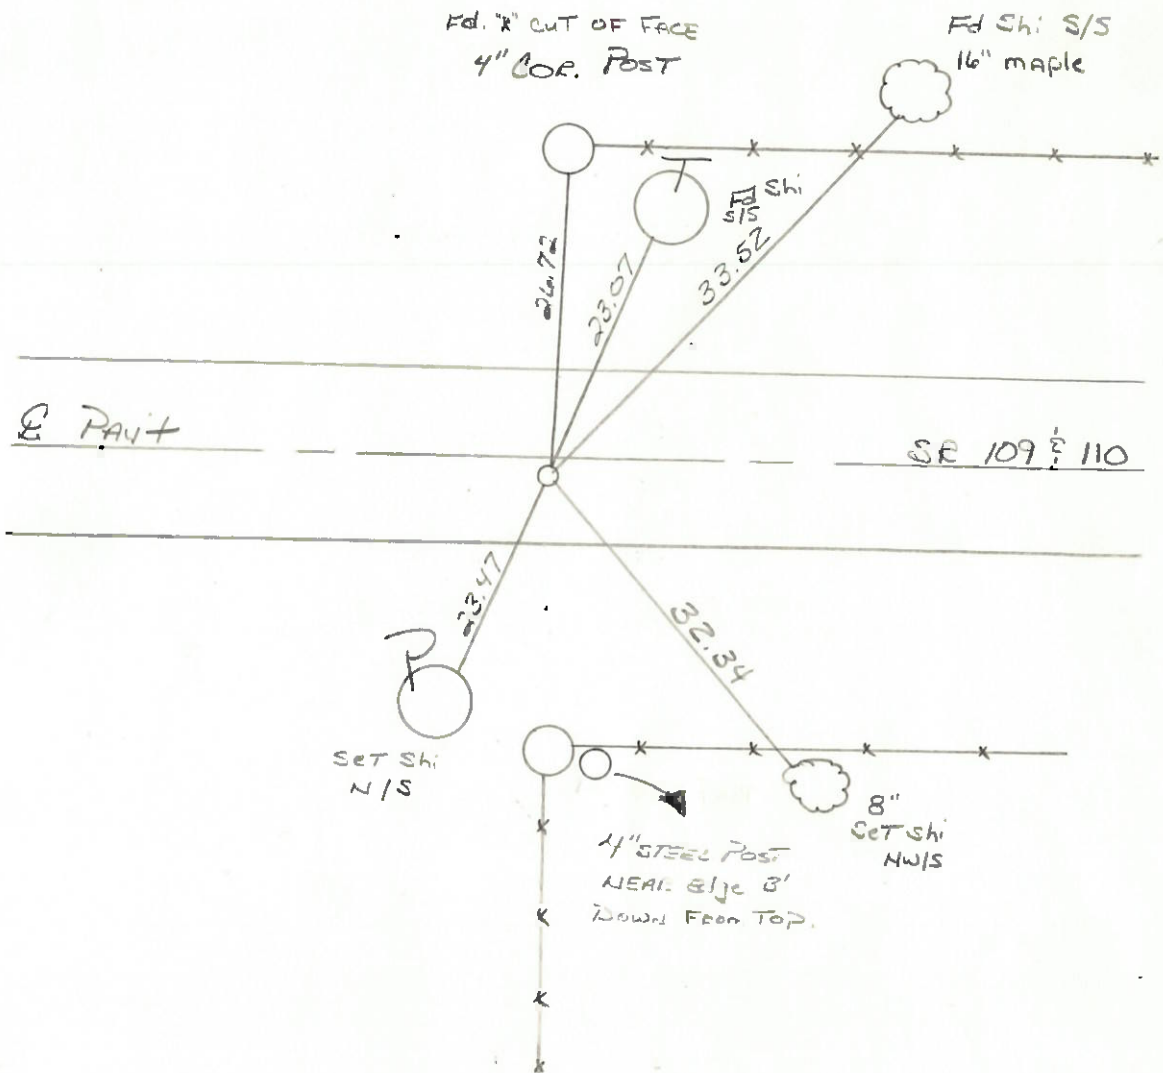 Fd. "X" CUT OF FACE
4" COR. POST
Fd Shi S/S
16" maple
T
Fd Shi
S/S
26.72
23.07
33.52
℄ PAV't
SR 109 & 110
23.47
32.34
P
SET Shi
N/S
8"
SET Shi
NW/S
4" STEEL POST
NEAR Edge 3'
DOWN FROM TOP.